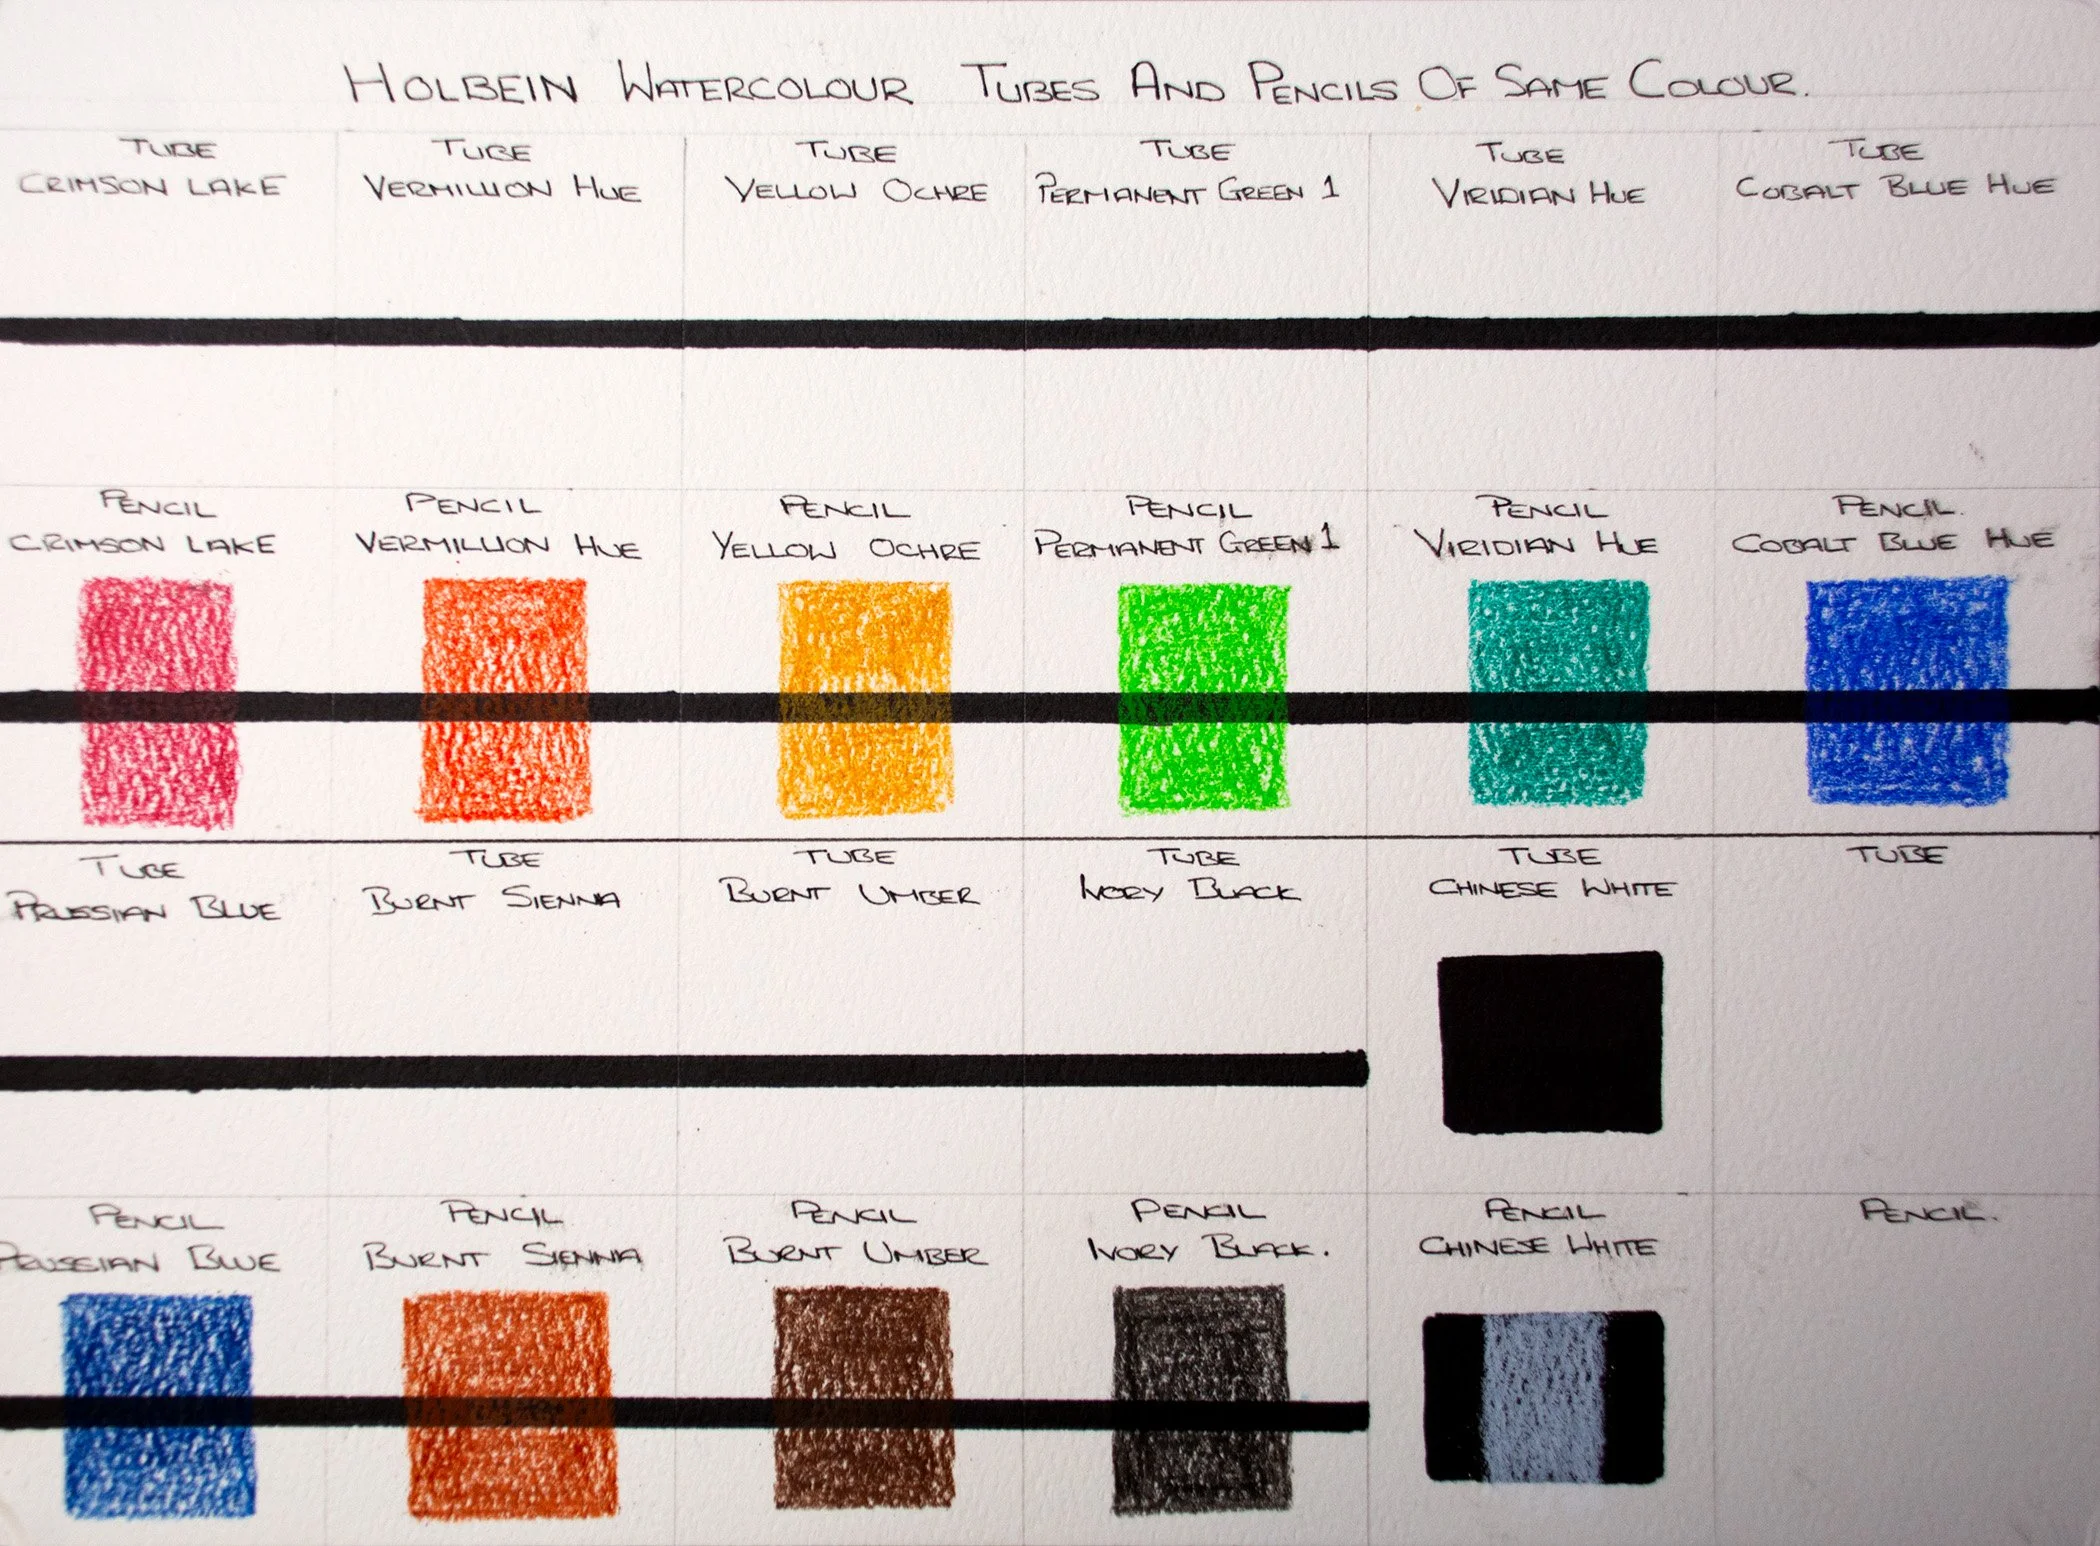 HOLBEIN WATERCOLOUR TUBES AND PENCILS OF SAME COLOUR.
TUBE TUBE TUBE TUBE TUBE TUBE
CRIMSON LAKE VERMILLION HUE YELLOW OCHRE PERMANENT GREEN 1 VIRIDIAN HUE COBALT BLUE HUE
PENCIL PENCIL PENCIL PENCIL PENCIL PENCIL.
CRIMSON LAKE VERMILLION HUE YELLOW OCHRE PERMANENT GREEN 1 VIRIDIAN HUE COBALT BLUE HUE
TUBE TUBE TUBE TUBE TUBE TUBE
PRUSSIAN BLUE BURNT SIENNA BURNT UMBER IVORY BLACK CHINESE WHITE
PENCIL PENCIL PENCIL PENCIL PENCIL PENCIL.
PRUSSIAN BLUE BURNT SIENNA BURNT UMBER IVORY BLACK. CHINESE WHITE